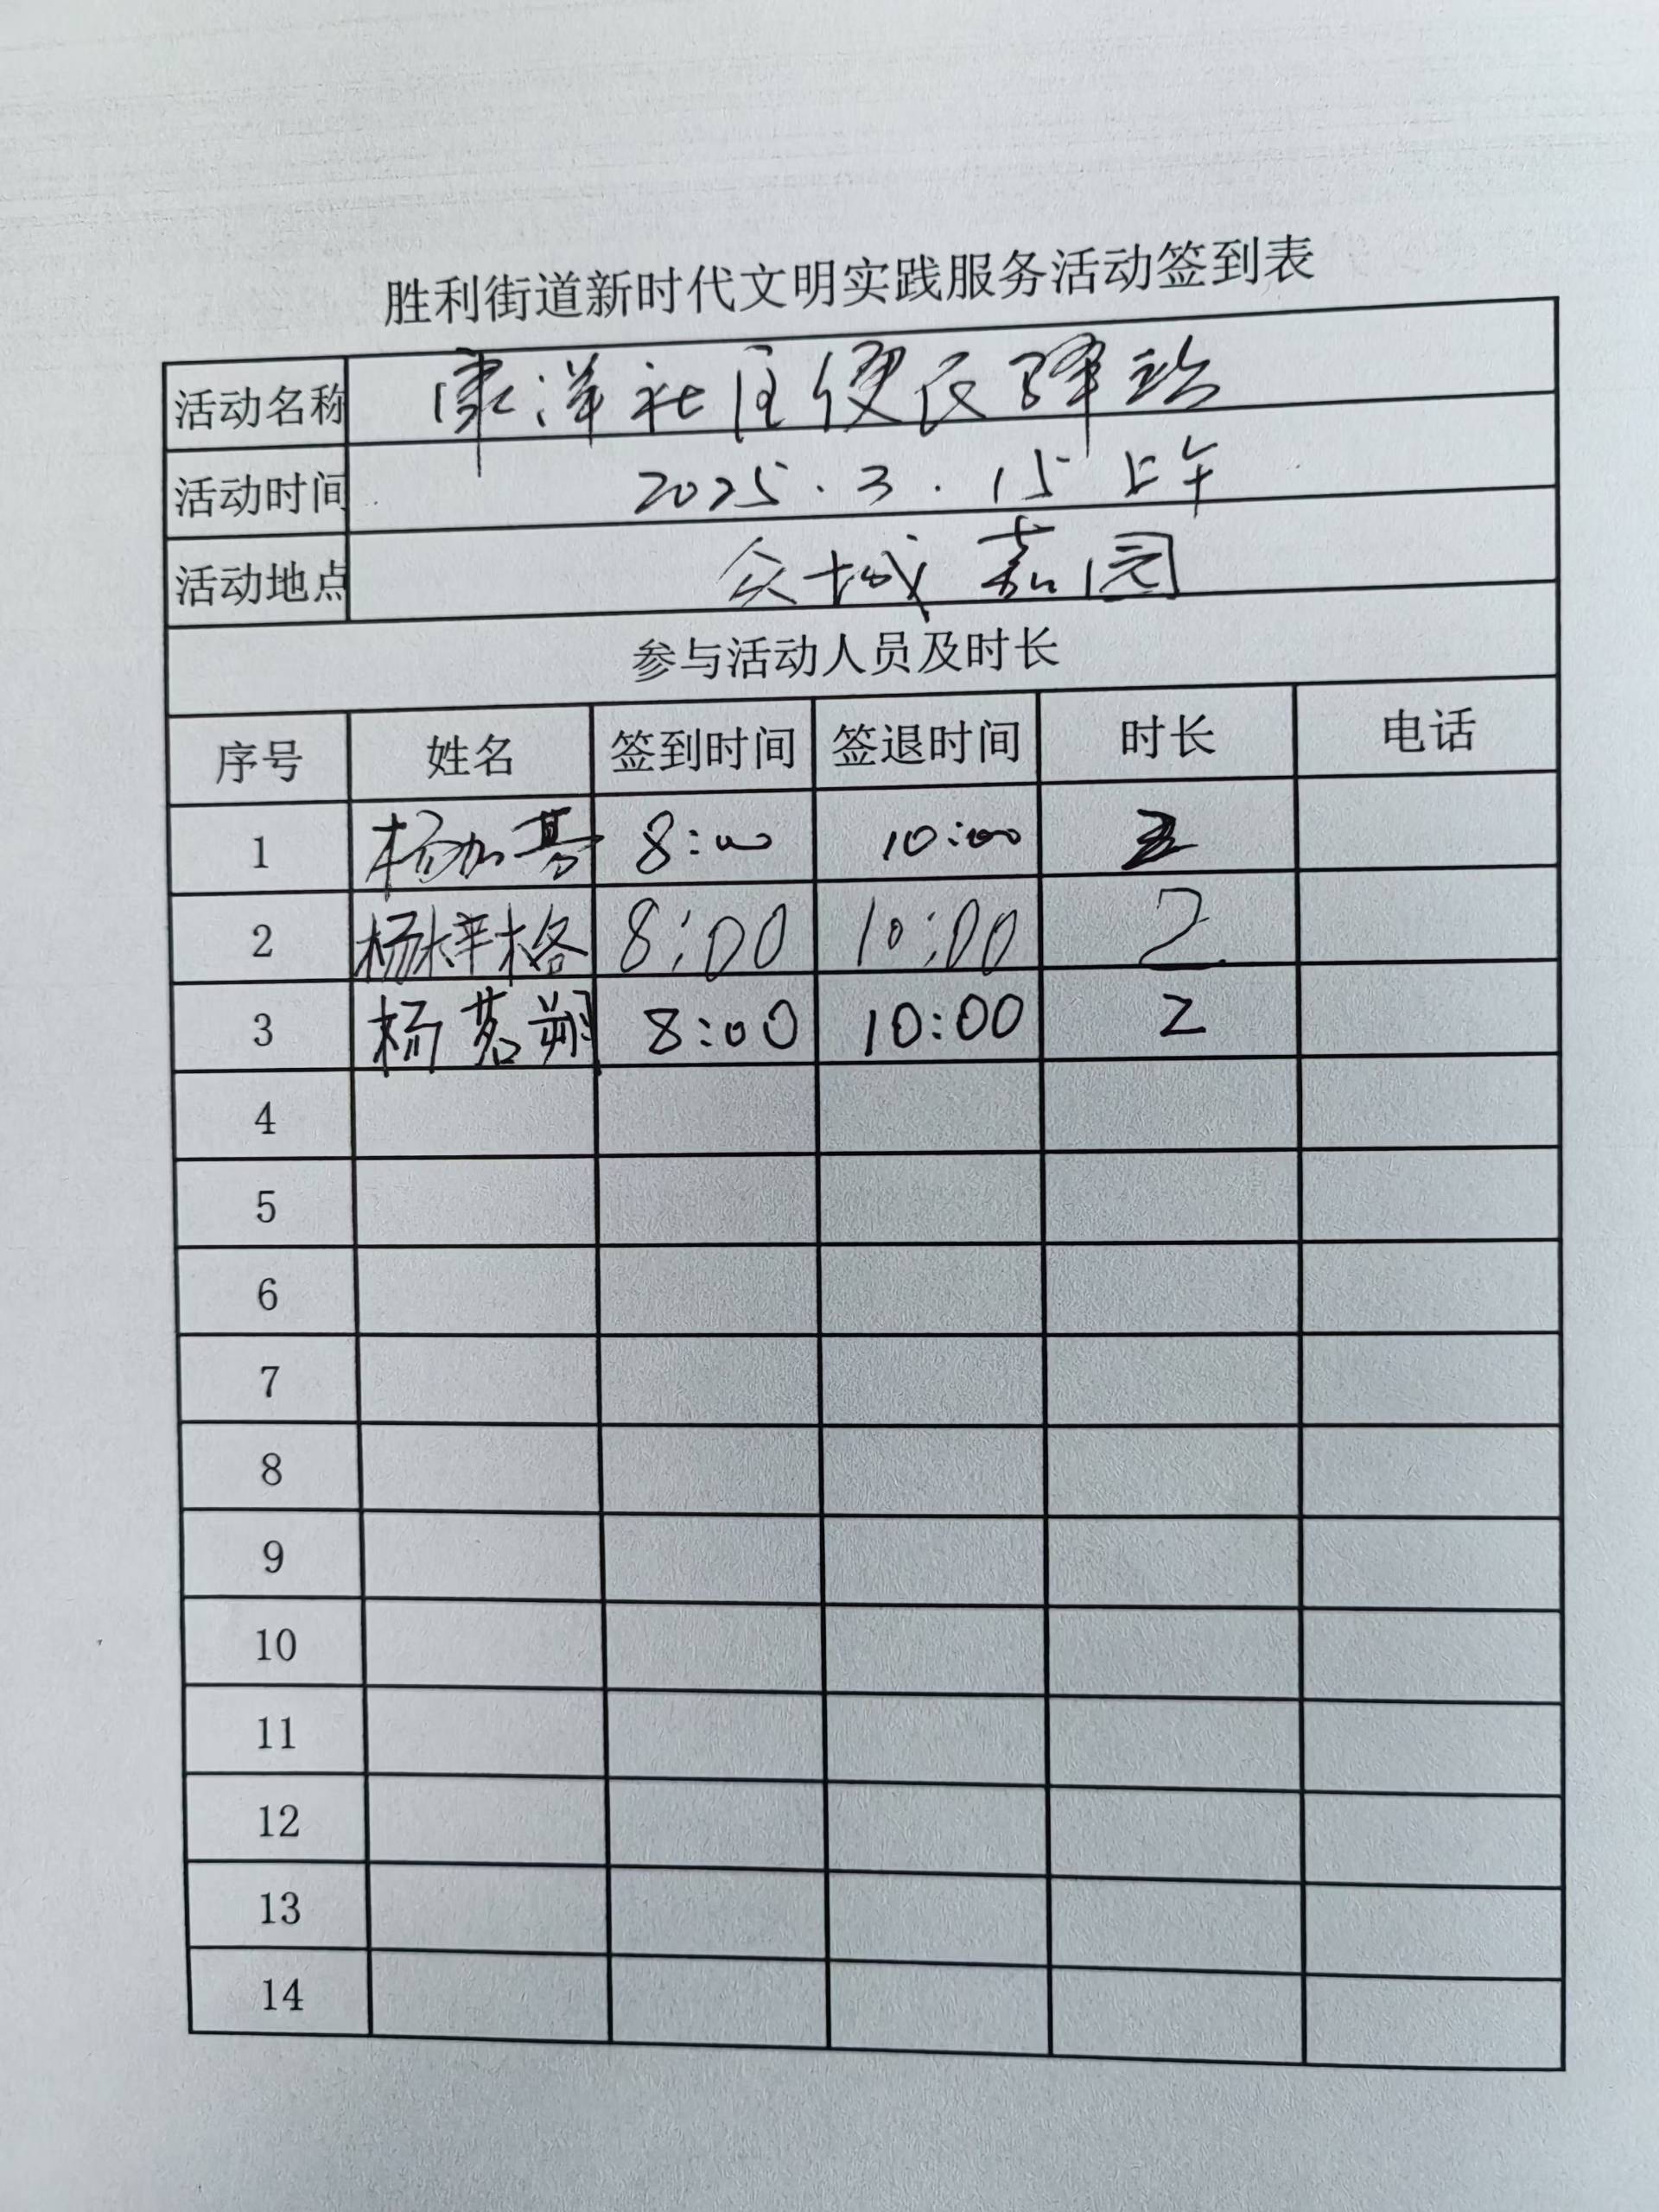 胜利街道新时代文明实践服务活动签到表
活动名称 康洋社区便民驿站
活动时间 2025.3.15 上午
活动地点 众城嘉园
参与活动人员及时长
序号 姓名 签到时间 签退时间 时长 电话
1 杨加 8:00 10:00
2 杨梓格 8:00 10:00 2
3 杨茗翔 8:00 10:00 2
4
5
6
7
8
9
10
11
12
13
14